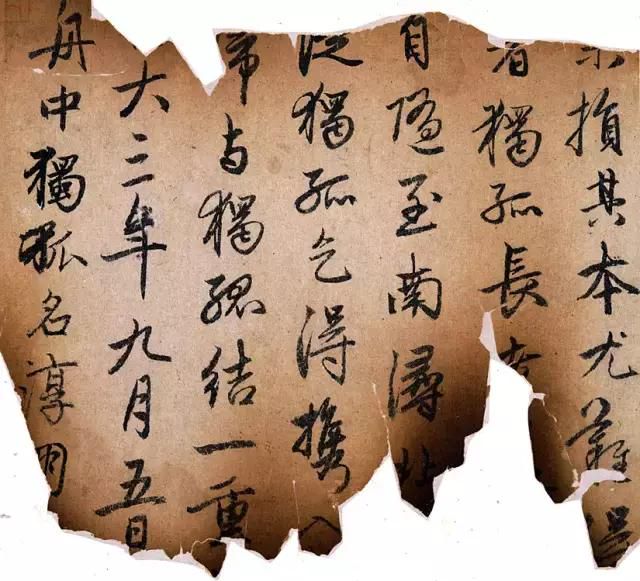 未損其本尤難得
者獨孤長老
自隨至南潯北
從獨孤乞得攜入
歸与獨孤結一重
大三年九月五日
舟中獨孤名淳朋